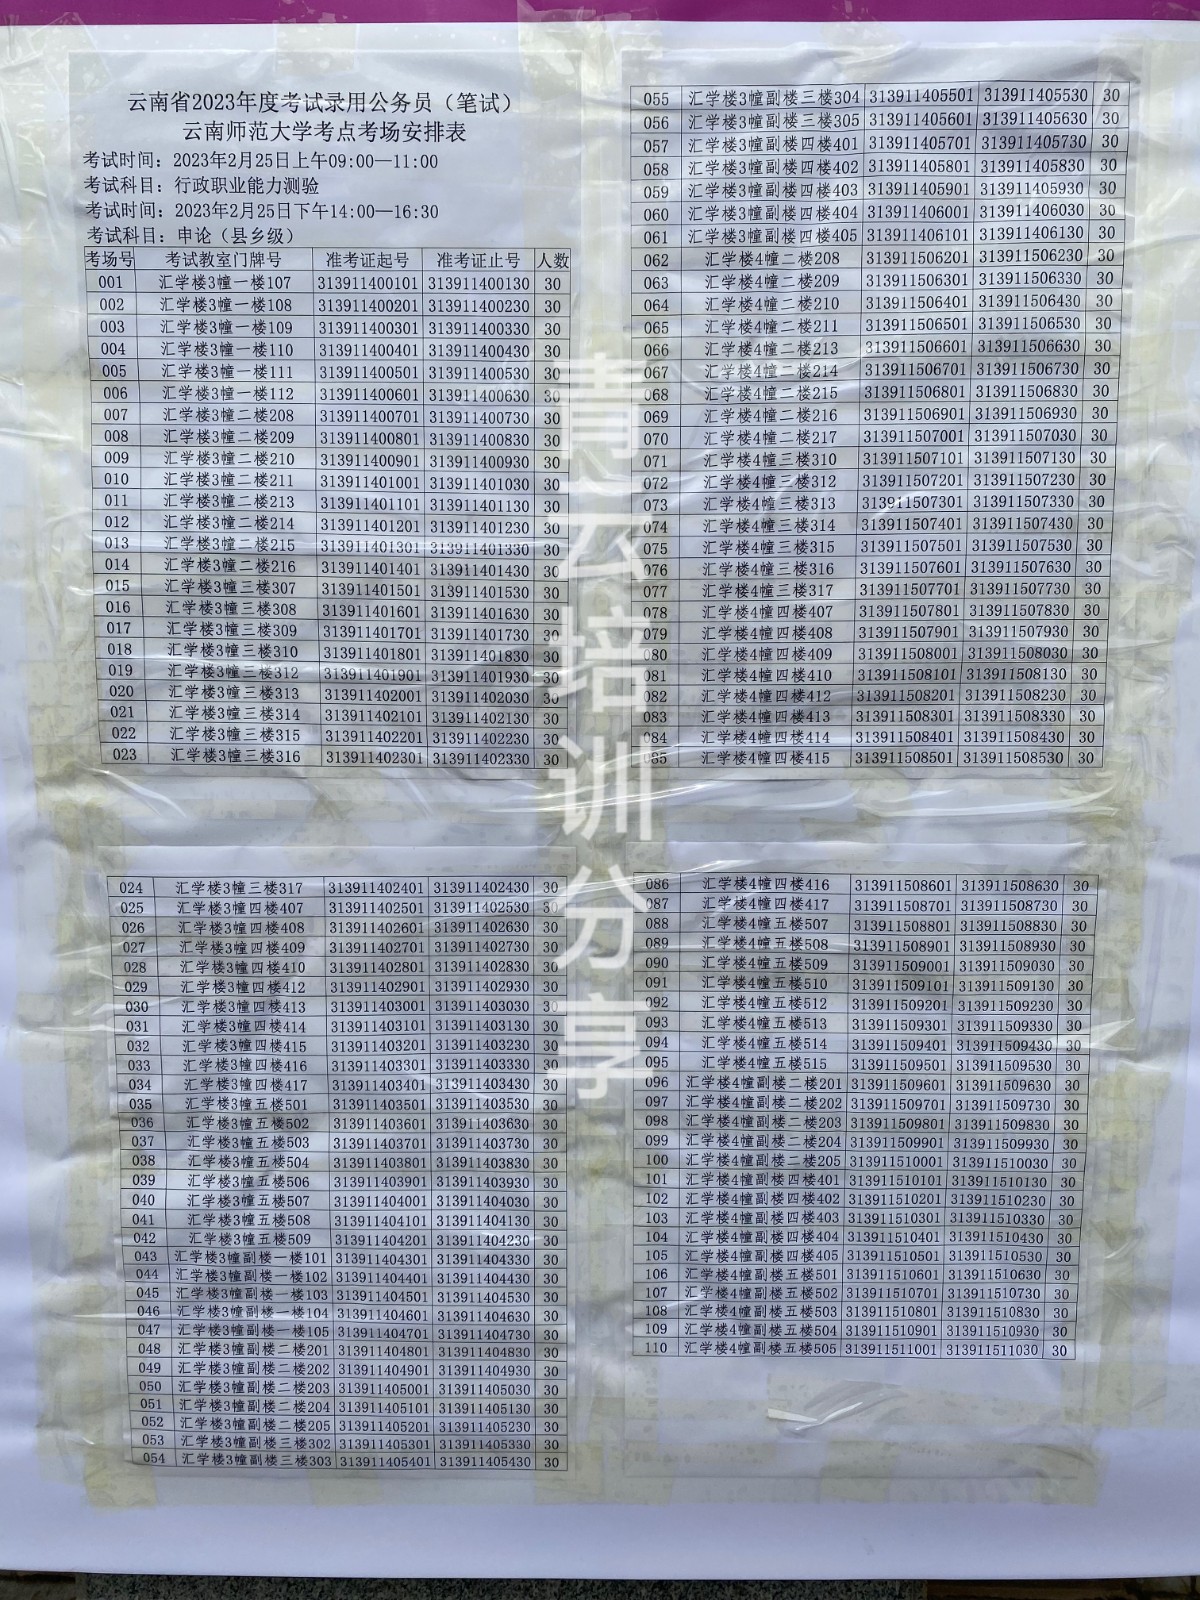 云南省2023年度考试录用公务员（笔试）
云南师范大学考点考场安排表
考试时间：2023年2月25日上午09:00—11:00
考试科目：行政职业能力测验
考试时间：2023年2月25日下午14:00—16:30
考试科目：申论（县乡级）
考场号 考试教室门牌号 准考证起号 准考证止号 人数
001 汇学楼3幢一楼107 313911400101 313911400130 30
002 汇学楼3幢一楼108 313911400201 313911400230 30
003 汇学楼3幢一楼109 313911400301 313911400330 30
004 汇学楼3幢一楼110 313911400401 313911400430 30
005 汇学楼3幢一楼111 313911400501 313911400530 30
006 汇学楼3幢一楼112 313911400601 313911400630 30
007 汇学楼3幢二楼208 313911400701 313911400730 30
008 汇学楼3幢二楼209 313911400801 313911400830 30
009 汇学楼3幢二楼210 313911400901 313911400930 30
010 汇学楼3幢二楼211 313911401001 313911401030 30
011 汇学楼3幢二楼213 313911401101 313911401130 30
012 汇学楼3幢二楼214 313911401201 313911401230 30
013 汇学楼3幢二楼215 313911401301 313911401330 30
014 汇学楼3幢二楼216 313911401401 313911401430 30
015 汇学楼3幢三楼307 313911401501 313911401530 30
016 汇学楼3幢三楼308 313911401601 313911401630 30
017 汇学楼3幢三楼309 313911401701 313911401730 30
018 汇学楼3幢三楼310 313911401801 313911401830 30
019 汇学楼3幢三楼312 313911401901 313911401930 30
020 汇学楼3幢三楼313 313911402001 313911402030 30
021 汇学楼3幢三楼314 313911402101 313911402130 30
022 汇学楼3幢三楼315 313911402201 313911402230 30
023 汇学楼3幢三楼316 313911402301 313911402330 30
024 汇学楼3幢三楼317 313911402401 313911402430 30
025 汇学楼3幢四楼407 313911402501 313911402530 30
026 汇学楼3幢四楼408 313911402601 313911402630 30
027 汇学楼3幢四楼409 313911402701 313911402730 30
028 汇学楼3幢四楼410 313911402801 313911402830 30
029 汇学楼3幢四楼412 313911402901 313911402930 30
030 汇学楼3幢四楼413 313911403001 313911403030 30
031 汇学楼3幢四楼414 313911403101 313911403130 30
032 汇学楼3幢四楼415 313911403201 313911403230 30
033 汇学楼3幢四楼416 313911403301 313911403330 30
034 汇学楼3幢四楼417 313911403401 313911403430 30
035 汇学楼3幢五楼501 313911403501 313911403530 30
036 汇学楼3幢五楼502 313911403601 313911403630 30
037 汇学楼3幢五楼503 313911403701 313911403730 30
038 汇学楼3幢五楼504 313911403801 313911403830 30
039 汇学楼3幢五楼506 313911403901 313911403930 30
040 汇学楼3幢五楼507 313911404001 313911404030 30
041 汇学楼3幢五楼508 313911404101 313911404130 30
042 汇学楼3幢五楼509 313911404201 313911404230 30
043 汇学楼3幢副楼一楼101 313911404301 313911404330 30
044 汇学楼3幢副楼一楼102 313911404401 313911404430 30
045 汇学楼3幢副楼一楼103 313911404501 313911404530 30
046 汇学楼3幢副楼一楼104 313911404601 313911404630 30
047 汇学楼3幢副楼一楼105 313911404701 313911404730 30
048 汇学楼3幢副楼二楼201 313911404801 313911404830 30
049 汇学楼3幢副楼二楼202 313911404901 313911404930 30
050 汇学楼3幢副楼二楼203 313911405001 313911405030 30
051 汇学楼3幢副楼二楼204 313911405101 313911405130 30
052 汇学楼3幢副楼二楼205 313911405201 313911405230 30
053 汇学楼3幢副楼三楼302 313911405301 313911405330 30
054 汇学楼3幢副楼三楼303 313911405401 313911405430 30
055 汇学楼3幢副楼三楼304 313911405501 313911405530 30
056 汇学楼3幢副楼三楼305 313911405601 313911405630 30
057 汇学楼3幢副楼四楼401 313911405701 313911405730 30
058 汇学楼3幢副楼四楼402 313911405801 313911405830 30
059 汇学楼3幢副楼四楼403 313911405901 313911405930 30
060 汇学楼3幢副楼四楼404 313911406001 313911406030 30
061 汇学楼3幢副楼四楼405 313911406101 313911406130 30
062 汇学楼4幢二楼208 313911506201 313911506230 30
063 汇学楼4幢二楼209 313911506301 313911506330 30
064 汇学楼4幢二楼210 313911506401 313911506430 30
065 汇学楼4幢二楼211 313911506501 313911506530 30
066 汇学楼4幢二楼213 313911506601 313911506630 30
067 汇学楼4幢二楼214 313911506701 313911506730 30
068 汇学楼4幢二楼215 313911506801 313911506830 30
069 汇学楼4幢二楼216 313911506901 313911506930 30
070 汇学楼4幢二楼217 313911507001 313911507030 30
071 汇学楼4幢三楼310 313911507101 313911507130 30
072 汇学楼4幢三楼312 313911507201 313911507230 30
073 汇学楼4幢三楼313 313911507301 313911507330 30
074 汇学楼4幢三楼314 313911507401 313911507430 30
075 汇学楼4幢三楼315 313911507501 313911507530 30
076 汇学楼4幢三楼316 313911507601 313911507630 30
077 汇学楼4幢三楼317 313911507701 313911507730 30
078 汇学楼4幢四楼407 313911507801 313911507830 30
079 汇学楼4幢四楼408 313911507901 313911507930 30
080 汇学楼4幢四楼409 313911508001 313911508030 30
081 汇学楼4幢四楼410 313911508101 313911508130 30
082 汇学楼4幢四楼412 313911508201 313911508230 30
083 汇学楼4幢四楼413 313911508301 313911508330 30
084 汇学楼4幢四楼414 313911508401 313911508430 30
085 汇学楼4幢四楼415 313911508501 313911508530 30
086 汇学楼4幢四楼416 313911508601 313911508630 30
087 汇学楼4幢四楼417 313911508701 313911508730 30
088 汇学楼4幢五楼507 313911508801 313911508830 30
089 汇学楼4幢五楼508 313911508901 313911508930 30
090 汇学楼4幢五楼509 313911509001 313911509030 30
091 汇学楼4幢五楼510 313911509101 313911509130 30
092 汇学楼4幢五楼512 313911509201 313911509230 30
093 汇学楼4幢五楼513 313911509301 313911509330 30
094 汇学楼4幢五楼514 313911509401 313911509430 30
095 汇学楼4幢五楼515 313911509501 313911509530 30
096 汇学楼4幢副楼二楼201 313911509601 313911509630 30
097 汇学楼4幢副楼二楼202 313911509701 313911509730 30
098 汇学楼4幢副楼二楼203 313911509801 313911509830 30
099 汇学楼4幢副楼二楼204 313911509901 313911509930 30
100 汇学楼4幢副楼二楼205 313911510001 313911510030 30
101 汇学楼4幢副楼四楼401 313911510101 313911510130 30
102 汇学楼4幢副楼四楼402 313911510201 313911510230 30
103 汇学楼4幢副楼四楼403 313911510301 313911510330 30
104 汇学楼4幢副楼四楼404 313911510401 313911510430 30
105 汇学楼4幢副楼四楼405 313911510501 313911510530 30
106 汇学楼4幢副楼五楼501 313911510601 313911510630 30
107 汇学楼4幢副楼五楼502 313911510701 313911510730 30
108 汇学楼4幢副楼五楼503 313911510801 313911510830 30
109 汇学楼4幢副楼五楼504 313911510901 313911510930 30
110 汇学楼4幢副楼五楼505 313911511001 313911511030 30
青云培训分享